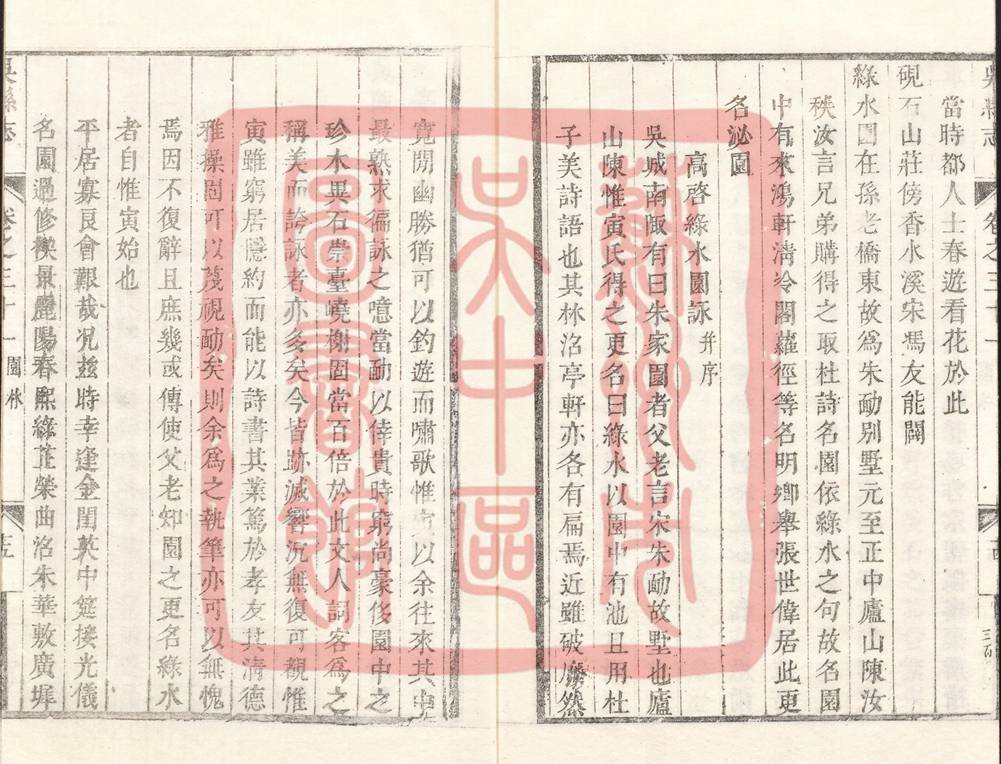 吳縣志
卷之三十一
當時都人士春遊看花於此
硯石山莊傍香水溪宋馮友能闢
綠水園在孫老橋東故爲朱勔别墅元至正中廬山陳汝
秩汝言兄弟購得之取杜詩名園依綠水之句故名園
中有來鴻軒淸泠閣蘿徑等名明鄉舉張世偉居此更
名泌園
高啓綠水園詠 并序
吳城南陬有曰朱家園者父老言宋朱勔故墅也廬
山陳惟寅氏得之更名曰綠水以園中有池且用杜
子美詩語也其林沼亭軒亦各有扁焉近雖破廢然
寛閒幽勝猶可以釣遊而嘯歌惟寅以余往來其中
最熟求徧詠之噫當勔以倖貴時窮尚豪侈園中之
珍木異石崇臺嶢榭固當百倍於此文人詞客爲之
稱美而誇詠者亦多矣今皆跡滅響沉無復可觀惟
寅雖窮居隱約而能以詩書其業篤於孝友其淸德
雅操固可以蔑視勔矣則余爲之執筆亦可以無愧
焉因不復辭且庶幾或傳使父老知園之更名綠水
者自惟寅始也
平居寡良會艱哉况兹時幸逢金閨英中筵接光儀
名園過修禊景麗陽春熙綠芷榮曲沼朱華敷廣墀
吳縣志
卷之三十一 園林
十五
蘇州市
吳中區
圖書館